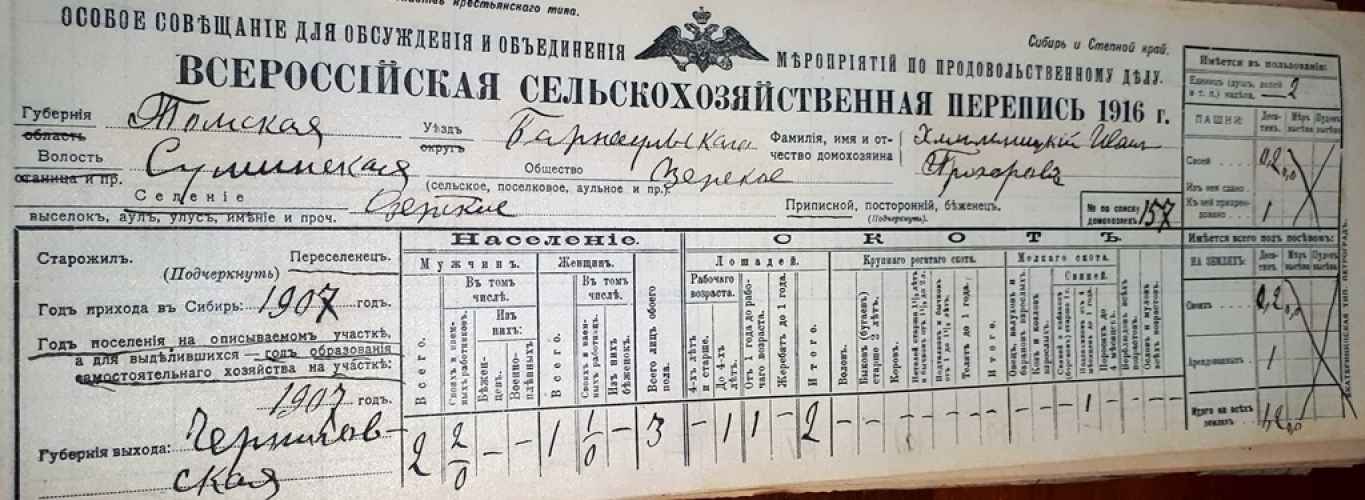 крестьянскаго типа.
ОСОБОЕ СОВѢЩАНІЕ ДЛЯ ОБСУЖДЕНІЯ И ОБЪЕДИНЕНІЯ МѢРОПРІЯТІЙ ПО ПРОДОВОЛЬСТВЕННОМУ ДѢЛУ.
Сибирь и Степной край.
ВСЕРОССІЙСКАЯ СЕЛЬСКОХОЗЯЙСТВЕННАЯ ПЕРЕПИСЬ 1916 г.
Губернія Томская Уѣздъ Барнаульскаго Фамилія, имя и от- Иванъ
область округъ чество домохозяина Прохоровъ
Волость Сулинская Общество
станица и пр. (сельское, поселковое, аульное и пр.)
Селеніе Приписной, посторонній, бѣженецъ. № по списку 157
выселокъ, аулъ, улусъ, имѣніе и проч. (Подчеркнуть). домохозяевъ
Старожилъ. Переселенецъ.
(Подчеркнуть)
Годъ прихода въ Сибирь: 1907 годъ.
Годъ поселенія на описываемомъ участкѣ,
а для выдѣлившихся — годъ образованія
самостоятельнаго хозяйства на участкѣ:
1907 годъ.
Губернія выхода: Чернигов-
ская
Населеніе.
Мужчинъ. Женщинъ.
Въ томъ числѣ. Въ томъ числѣ.
Изъ нихъ:
Всего.
Своихъ и наемныхъ работниковъ.
Бѣженцевъ.
Военноплѣнныхъ.
Всего.
Своихъ и наемныхъ работницъ.
Изъ нихъ бѣженокъ.
Всего лицъ обоего пола.
2 2/0 — — 1 1/0 — 3
СКОТЪ
Лошадей. Крупнаго рогатаго скота. Мелкаго скота.
Рабочаго возраста. Свиней.
4-хъ лѣтъ и старше.
До 4-хъ лѣтъ.
Отъ 1 года до рабочаго возраста.
Жеребятъ до 1 года.
Итого.
Воловъ.
Быковъ (бугаевъ) старше 2 лѣтъ.
Коровъ.
Телятъ до 1 года.
Итого.
— 1 1 — 2 — — — — — — — — — — 1 — — —
Имѣется въ пользованіи:
Единицъ (душ., долей и т. п.) надѣла. 2
ПАШНИ: Деся- тинъ. Мѣръ высѣва. Пудовъ высѣва.
Своей 0,2
Изъ нея сдано
Къ ней приарен- довано 1
Имѣется всего подъ посѣвомъ:
НА ЗЕМЛЯХЪ: Деся- тинъ. Мѣръ высѣва. Пудовъ высѣва.
Своихъ 0,2
Арендованныхъ 1
Итого на всѣхъ земляхъ 1,2
ЕКАТЕРИНСКАЯ ТИП. ПЕТРОГРАДЪ.